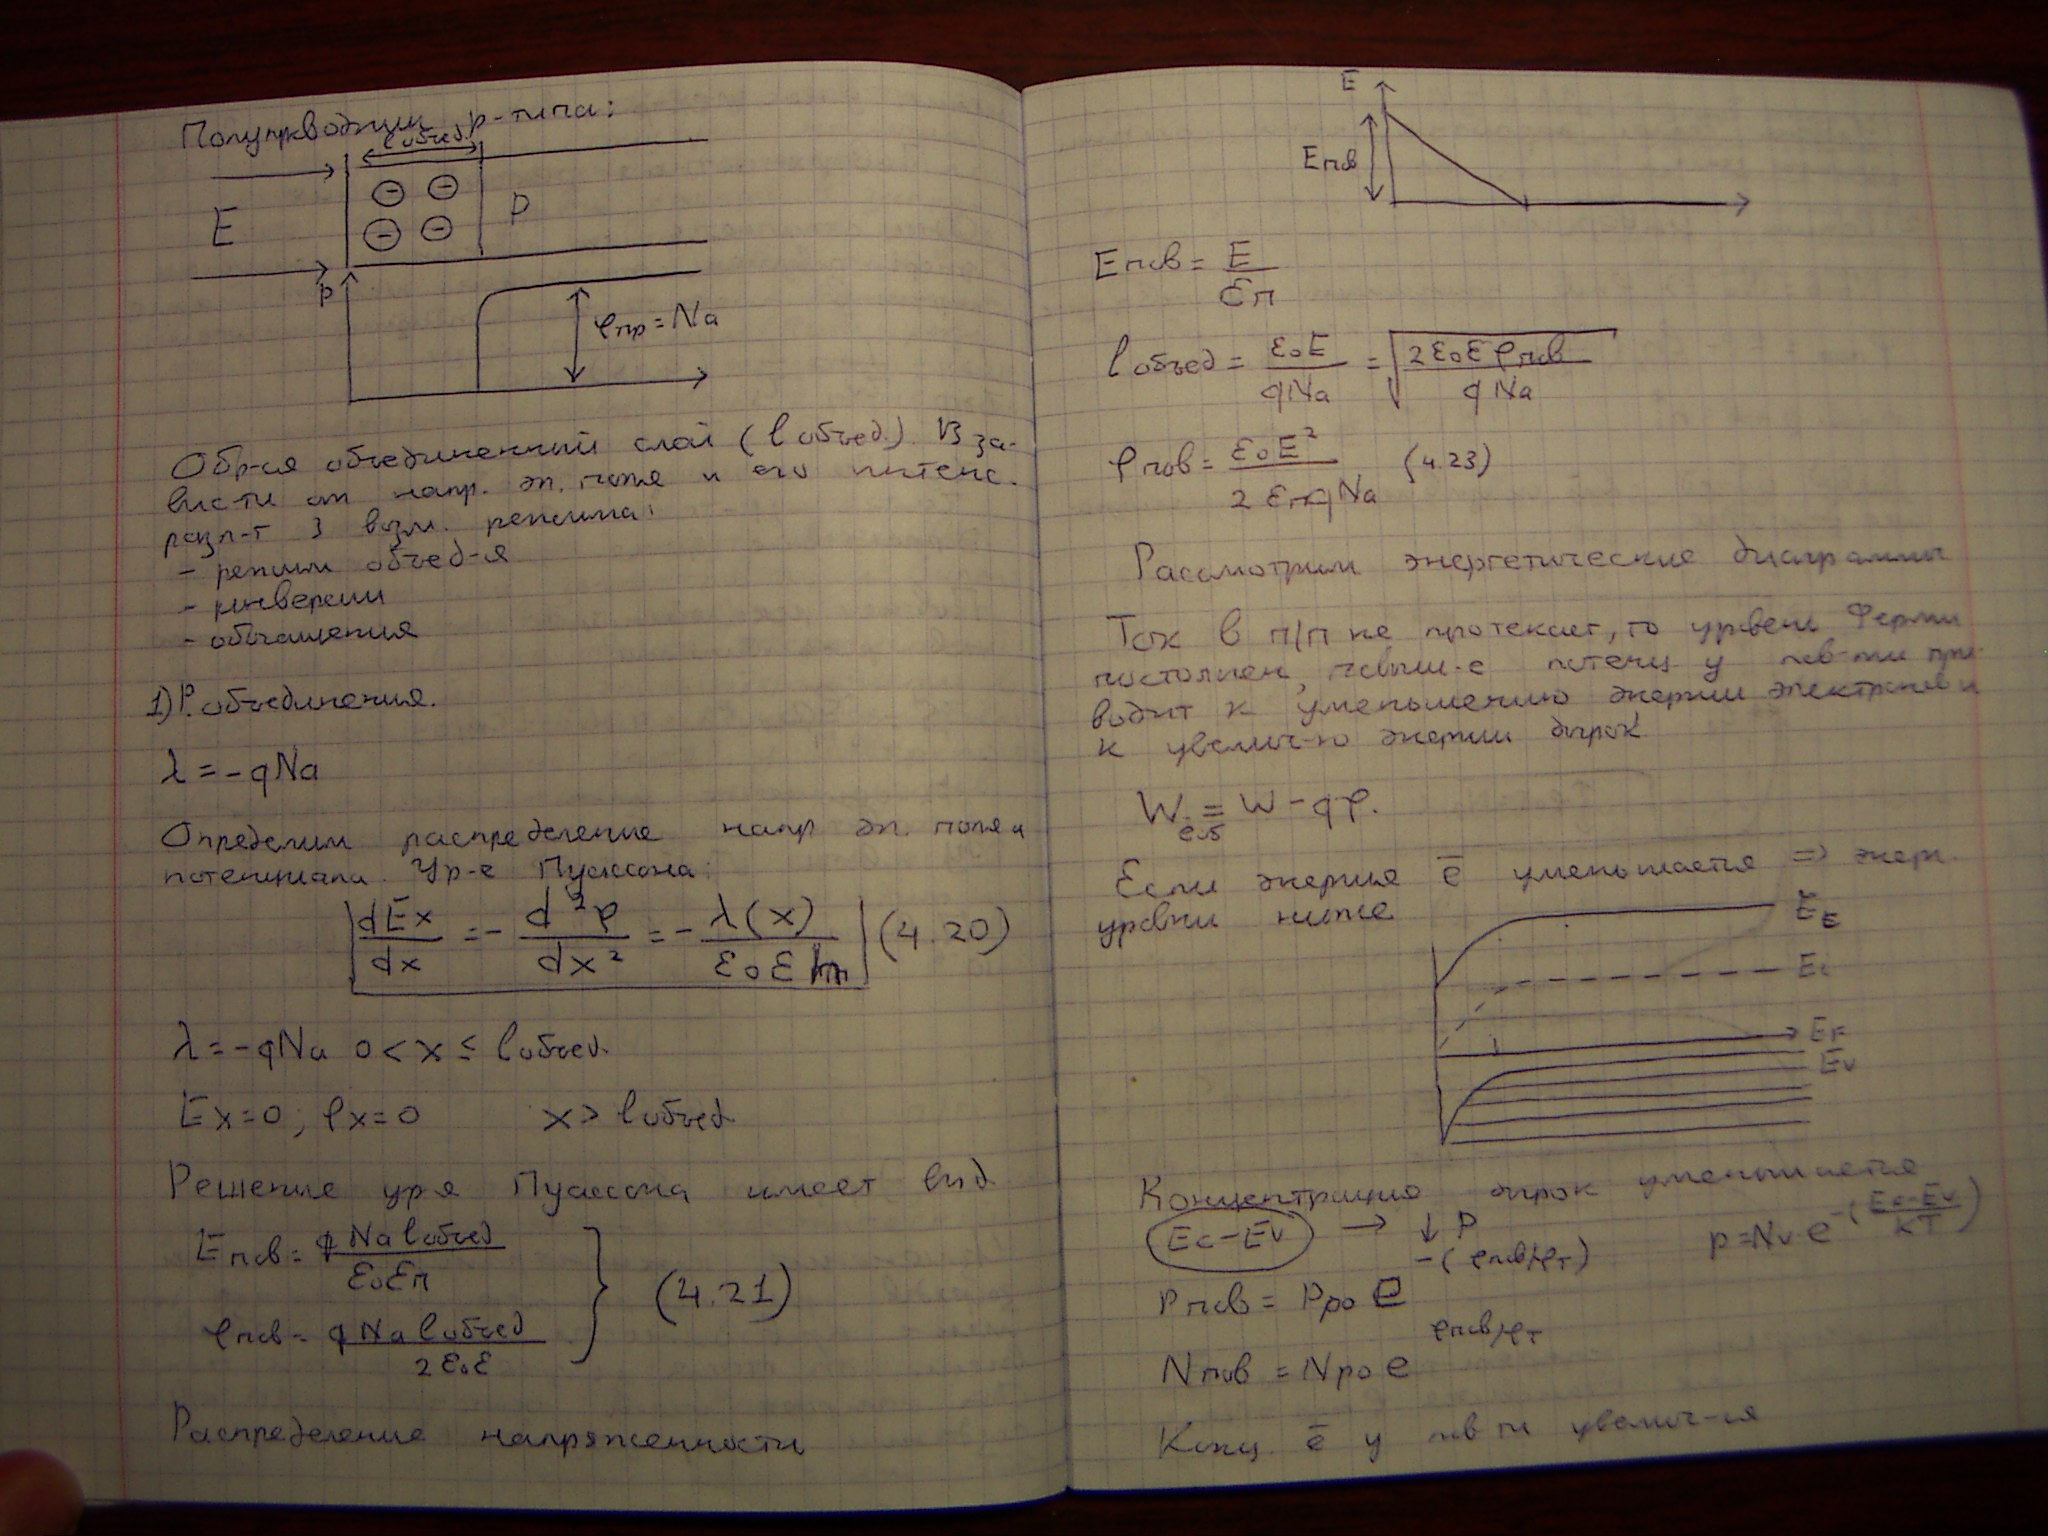 Полупрводник p-типа:
lобъед.
E
p
p
φпр = Na
Обр-ся объединенный слой (lобъед.) В за-
висти от напр. эл. поля и его интенс.
разл-т 3 возм. режима:
- режим объед-я
- инверсии
- обогащения
1) Р. объединения.
λ = -qNa
Определим распределение напр эл. поля и
потенциала. Ур-е Пуассона:
dEx/dx = - d²φ/dx² = - λ(x)/ε₀εп (4.20)
λ = -qNa 0 < x ≤ lобъед.
Ex=0; φx=0 x > lобъед.
Решение ур-я Пуассона имеет вид
Eпов = qNa lобъед/ε₀εп
φпов = qNa lобъед/2ε₀ε
(4.21)
Распределение напряженности
E
Eпов
Eпов = E/εп
lобъед = ε₀E/qNa = √(2ε₀εφпов/qNa)
φпов = ε₀E²/2εпqNa (4.23)
Рассмотрим энергетические диаграммы
Ток в п/п не протекает, то уровень Ферми
постоянен, повыш-е потенц у пов-ти при-
водит к уменьшению энергии электронов и
к увелич-ю энергии дырок
W = W - qφ.
Если энергия e̅ уменьшается => энерг.
уровни ниже
EE
Ei
EF
Ev
Концентрация дырок уменьшается
Ec-Ev → ↓ p p = Nv e^-((Ec-Ev)/kT)
Pпов = Pp0 e^-(φпов/φT)
Nпов = Np0 e^φпов/φT
Конц. e̅ у пов ти увелич-ся